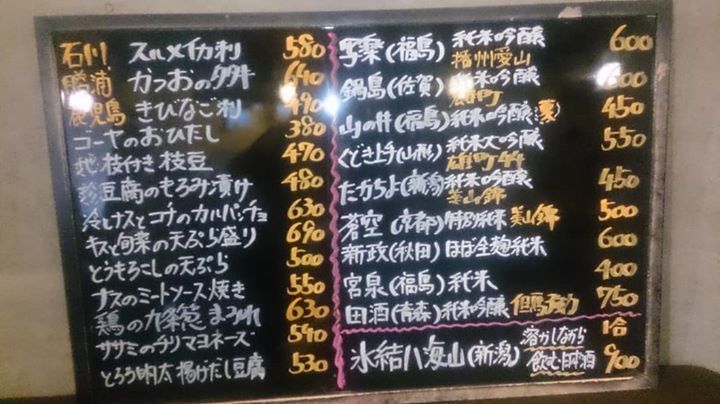 石川 スルメイカ刺 580
勝浦 かつおのタタキ 640
鹿児島 きびなご刺 490
ゴーヤのおひたし 380
枝付き枝豆 470
豆腐のもろみ漬け 480
冷しナスとコチのカルパッチョ 630
キスと旬菜の天ぷら盛り 690
とうもろこしの天ぷら 500
ナスのミートソース焼き 550
鶏の九条葱まみれ 630
ササミのチリマヨネーズ 540
とろろ明太揚げだし豆腐 530
写楽(福島)純米吟醸 播州愛山 600
鍋島(佐賀)純米吟醸 雄町 600
山の井(福島)純米吟醸(夏) 450
くどき上手(山形)純米大吟醸 雄町44 550
たかちよ(新潟)純米吟醸 美山錦 450
蒼空(京都)特別純米 美山錦 500
新政(秋田)ほぼ全麹純米 600
宮泉(福島)純米 400
田酒(青森)純米吟醸 但馬強力 750
氷結八海山(新潟) 溶かしながら飲む日本酒 1合 900